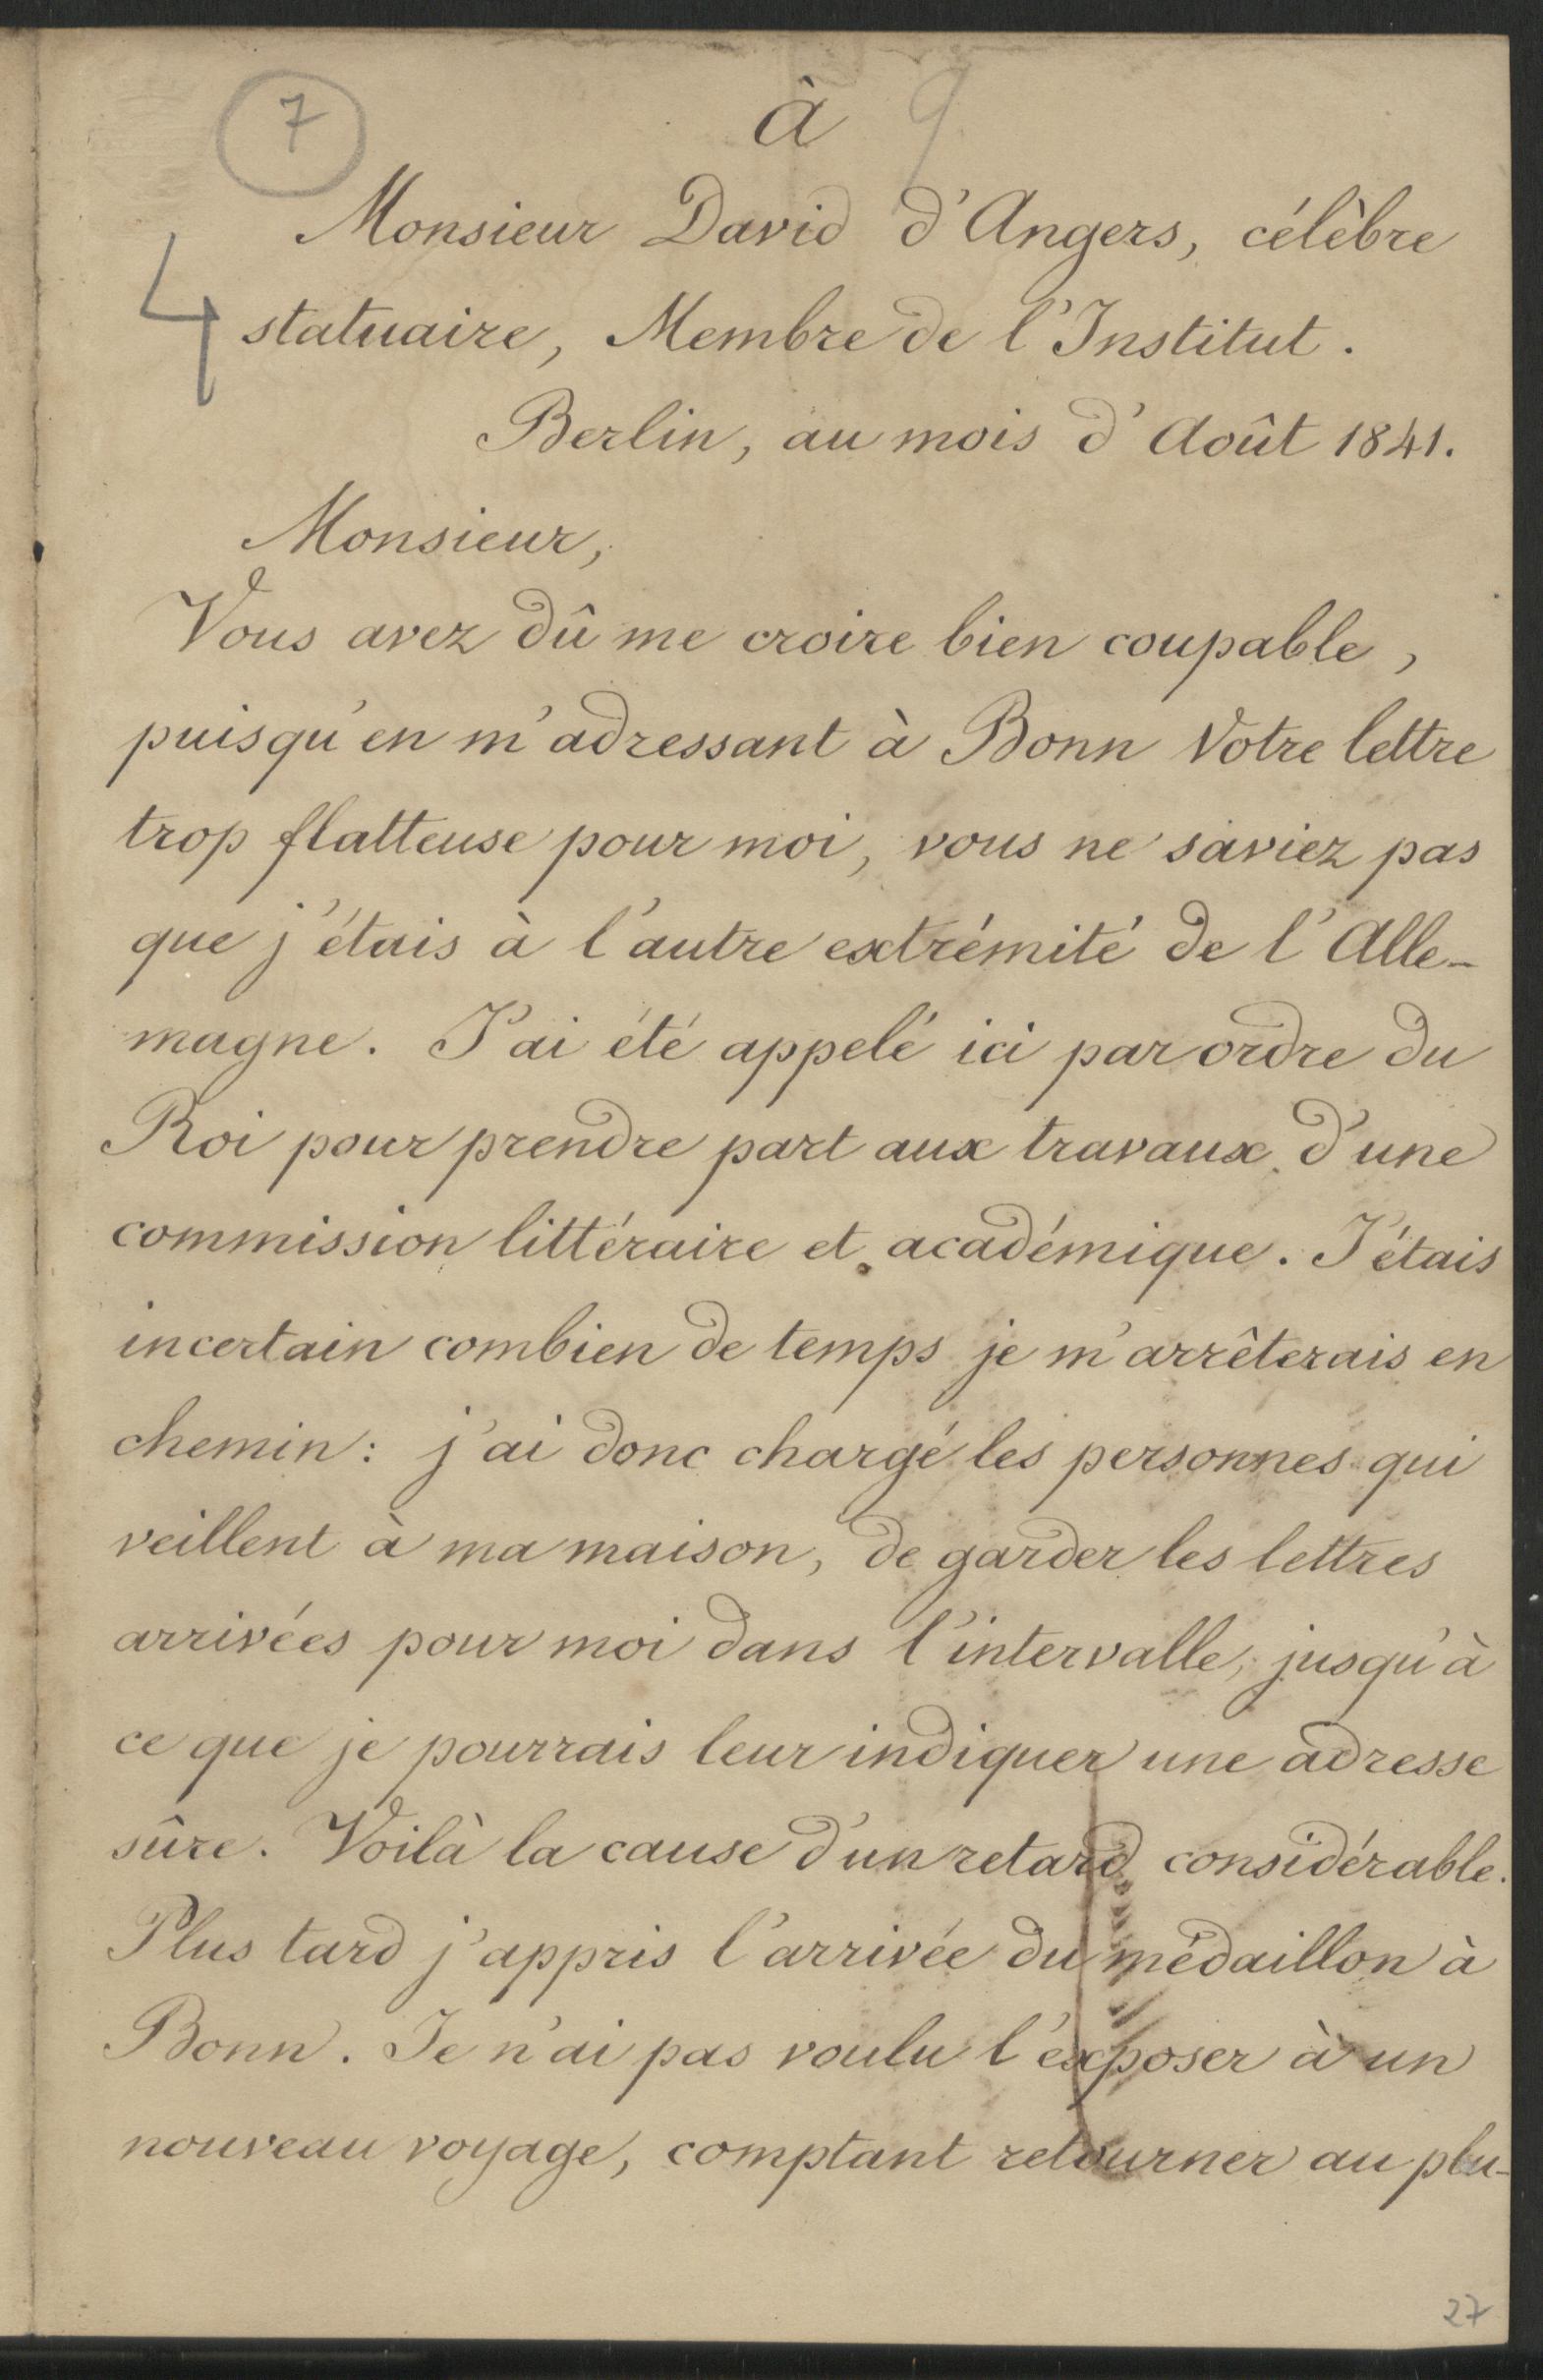 7
à 9
Monsieur David d'Angers, célèbre
4
statuaire, Membre de l'Institut.
Berlin, au mois d'Août 1841.
Monsieur,
Vous avez dû me croire bien coupable,
puisqu'en m'adressant à Bonn Votre lettre
trop flatteuse pour moi, vous ne saviez pas
que j'étais à l'autre extrémité de l'Alle-
magne. J'ai été appelé ici par ordre du
Roi pour prendre part aux travaux d'une
commission littéraire et académique. J'étais
incertain combien de temps je m'arrêterais en
chemin: j'ai donc chargé les personnes qui
veillent à ma maison, de garder les lettres
arrivées pour moi dans l'intervalle, jusqu'à
ce que je pourrais leur indiquer une adresse
sûre. Voilà la cause d'un retard considérable.
Plus tard j'appris l'arrivée du médaillon à
Bonn. Je n'ai pas voulu l'exposer à un
nouveau voyage, comptant retourner au plu-
27